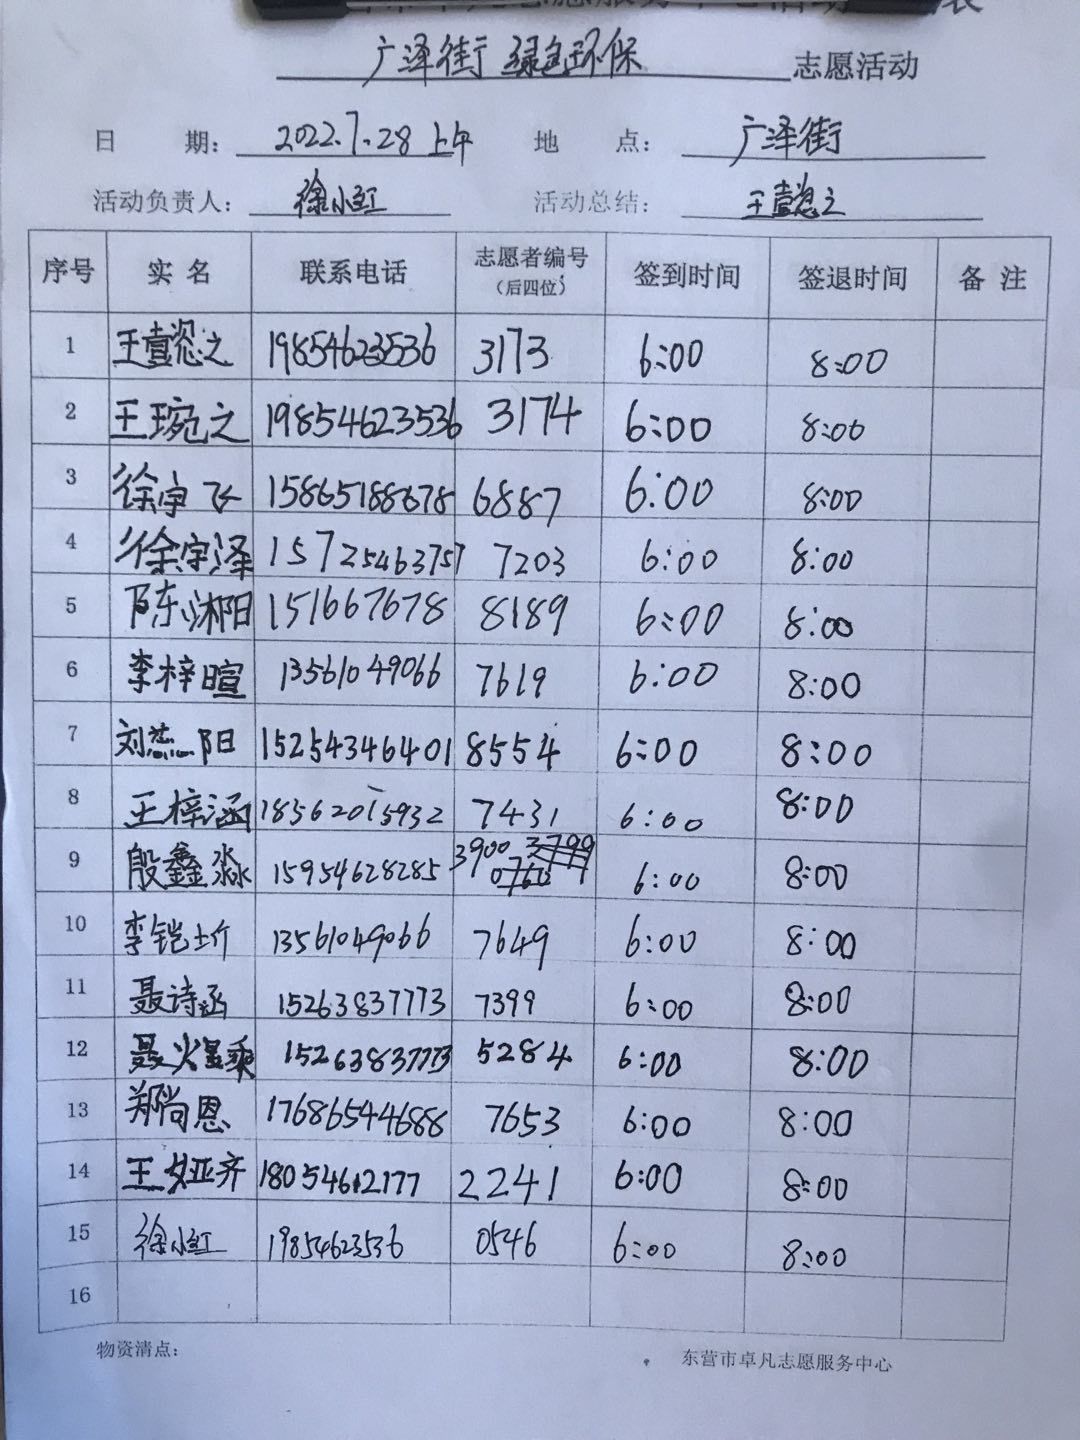 广泽街绿色环保 志愿活动
日 期: 2022.7.28 上午 地 点: 广泽街
活动负责人: 徐小红 活动总结: 王壹
序号 实名 联系电话 志愿者编号(后四位) 签到时间 签退时间 备注
1 王壹 19854623536 3173 6:00 8:00
2 王琬之 19854623536 3174 6:00 8:00
3 徐宇飞 15865188678 6887 6:00 8:00
4 徐宇泽 15725463757 7203 6:00 8:00
5 陈沐阳 151667678 8189 6:00 8:00
6 李梓暄 13561049066 7619 6:00 8:00
7 刘蕊阳 15254346401 8554 6:00 8:00
8 王梓涵 18562015932 7431 6:00 8:00
9 殷鑫淼 15954628285 3900 6:00 8:00
10 李铠圻 13561049066 7649 6:00 8:00
11 聂诗涵 15263837773 7399 6:00 8:00
12 聂 15263837773 5284 6:00 8:00
13 郑尚恩 17686544688 7653 6:00 8:00
14 王 18054612177 2241 6:00 8:00
15 徐小红 19854623536 0546 6:00 8:00
16
物资清点: 东营市卓凡志愿服务中心